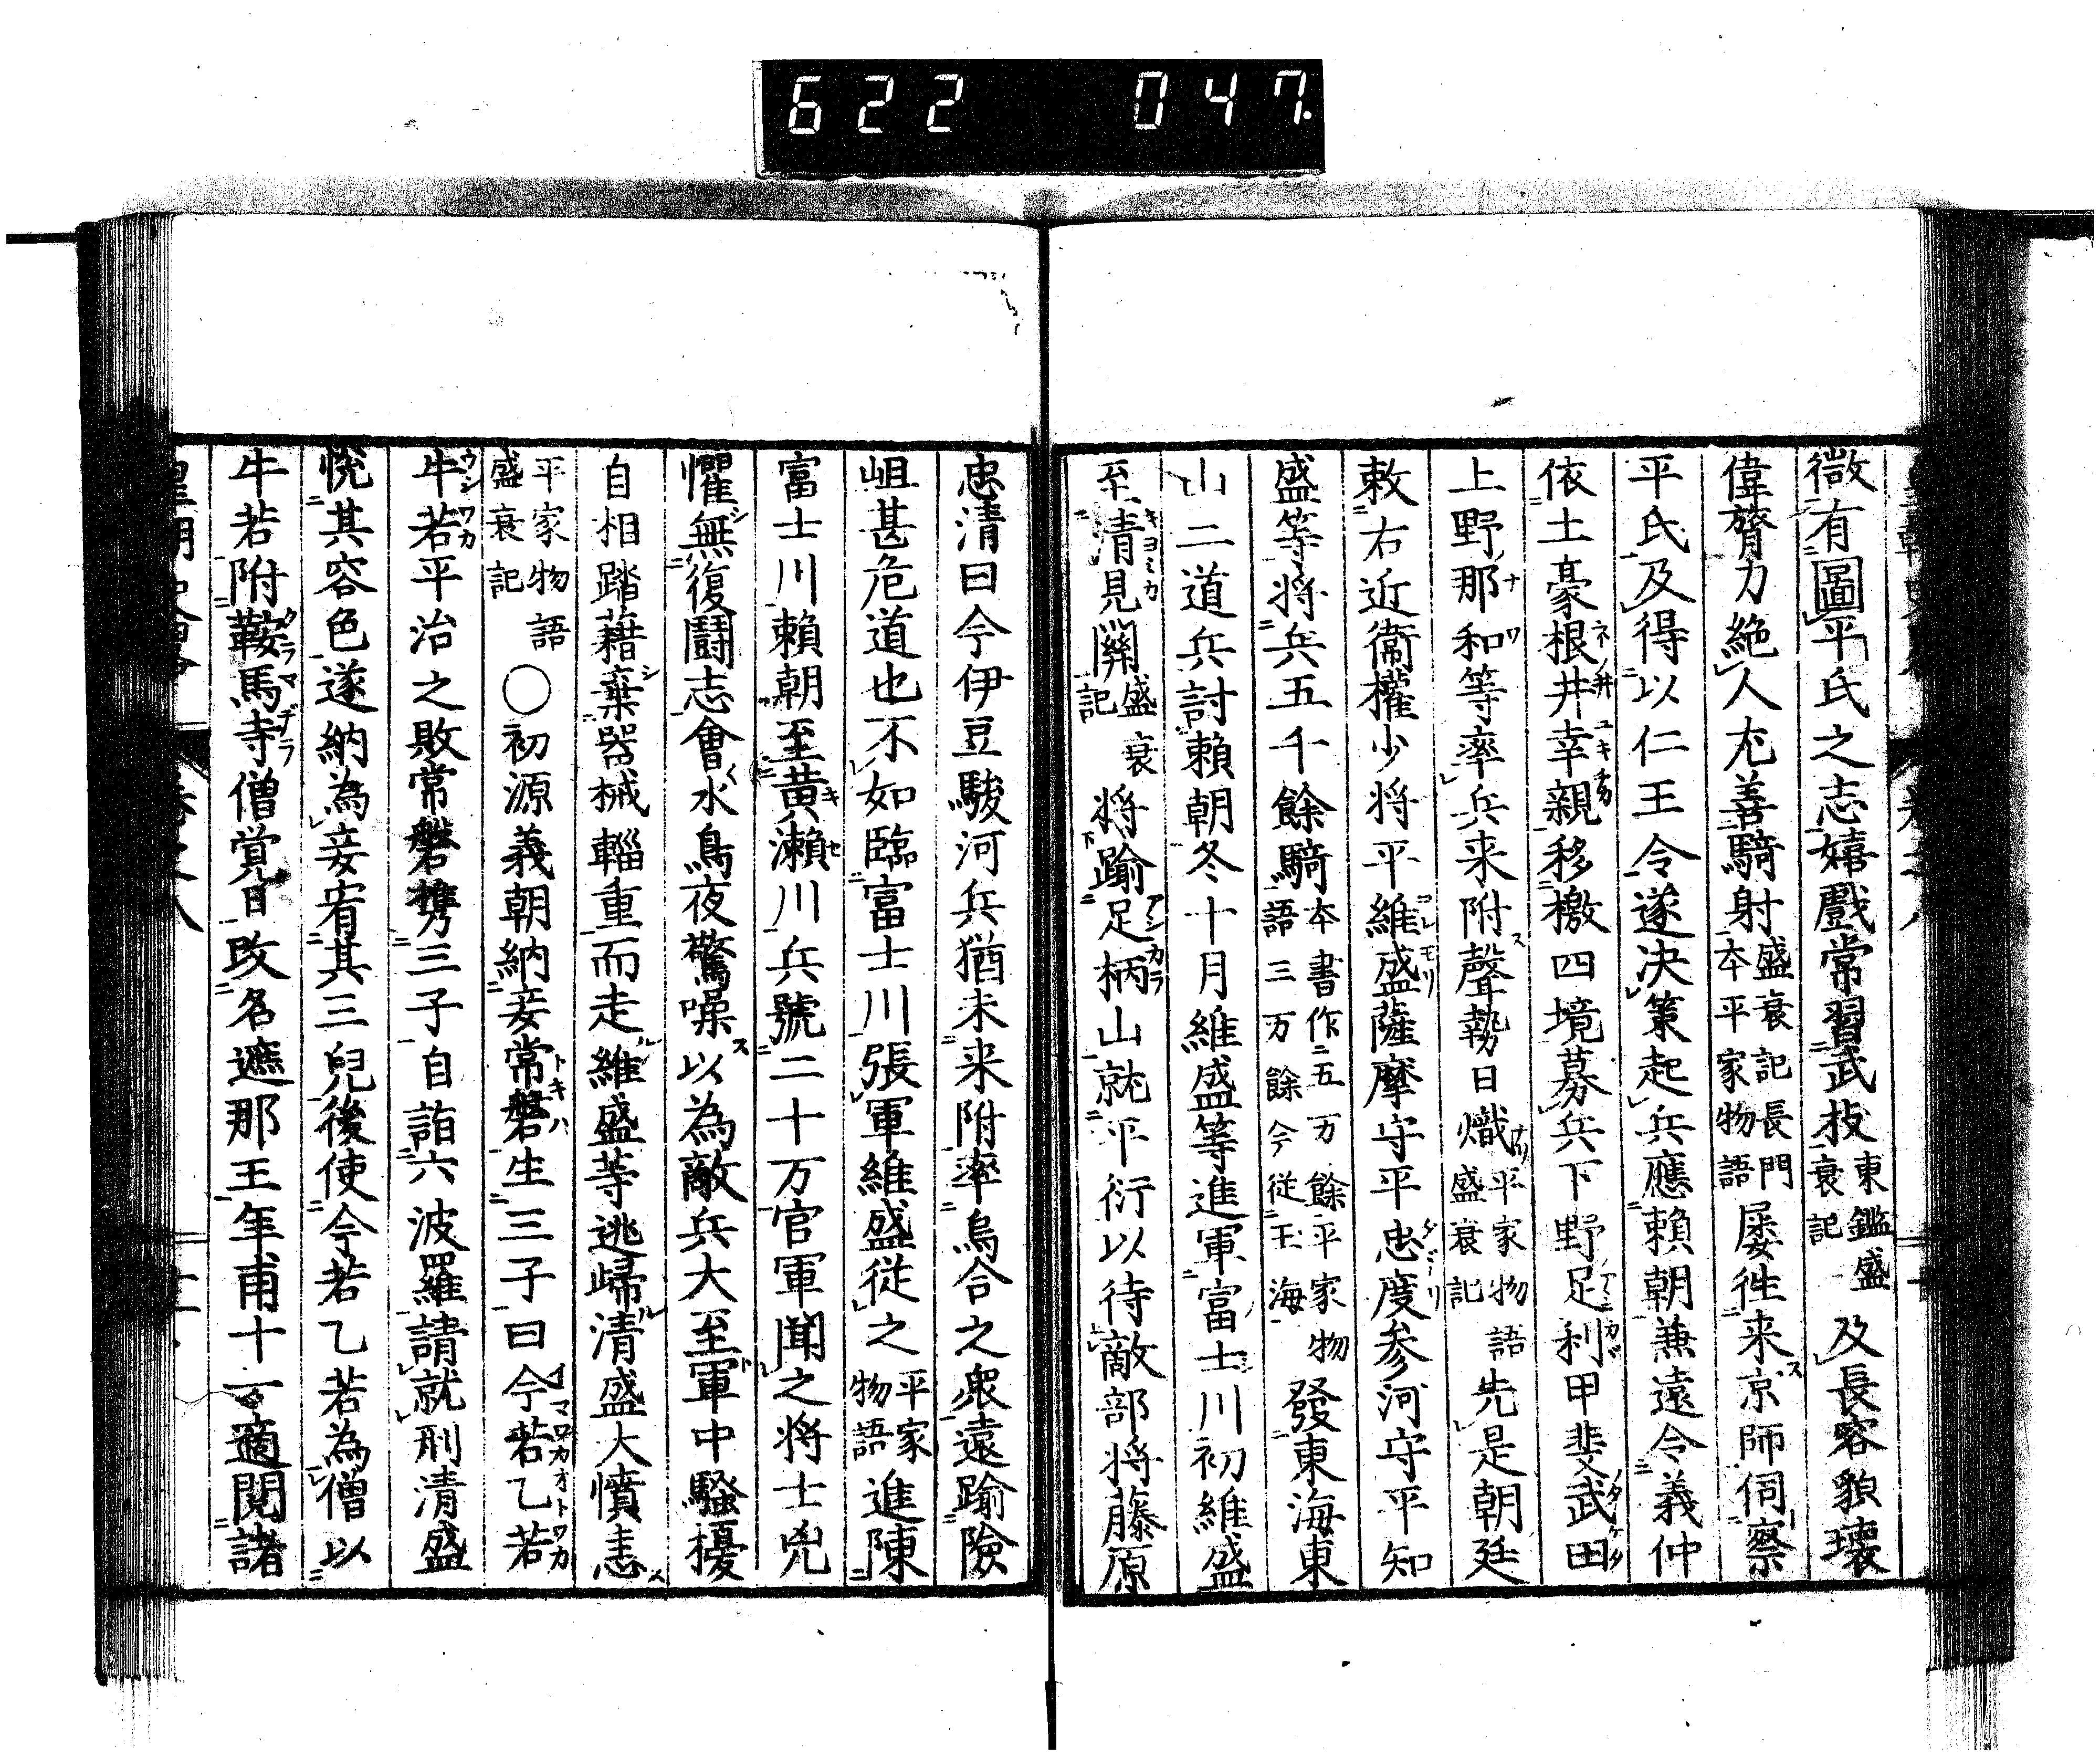 622 047.
微有圖平氏之志嬉戲常習武技東鑑盛衰記及長容貌壊
偉膂力絶人尤善騎射盛衰記長門本平家物語屡徃来京師伺察
平氏及得以仁王令遂决策起兵應賴朝兼遠令義仲
依土豪根井幸親移檄四境募兵下野足利甲斐武田
上野那和等率兵来附聲勢日熾平家物語盛衰記先是朝廷
敕右近衞權少将平維盛薩摩守平忠度参河守平知
盛等将兵五千餘騎本書作二五万餘平家物語三万餘今従玉海發東海東
山二道兵討賴朝冬十月維盛等進軍富士川初維盛
至清見關盛衰記将踰足柄山就平衍以待敵部将藤原
忠清曰今伊豆駿河兵猶未来附率烏合之衆遠踰險
岨甚危道也不如臨富士川張軍維盛従之平家物語進陳
富士川賴朝至黄瀨川兵號二十万官軍聞之将士兇
懼無復鬪志會水鳥夜驚噪以為敵兵大至軍中騷擾
自相踏藉棄器械輜重而走維盛等逃歸清盛大憤恚
平家物語盛衰記○初源義朝納妾常磐生三子曰今若乙若
牛若平治之敗常磐携三子自詣六波羅請就刑清盛
悅其容色遂納為妾宥其三兒後使今若乙若為僧以
牛若附鞍馬寺僧覚日改名遮那王年甫十一適閱諸